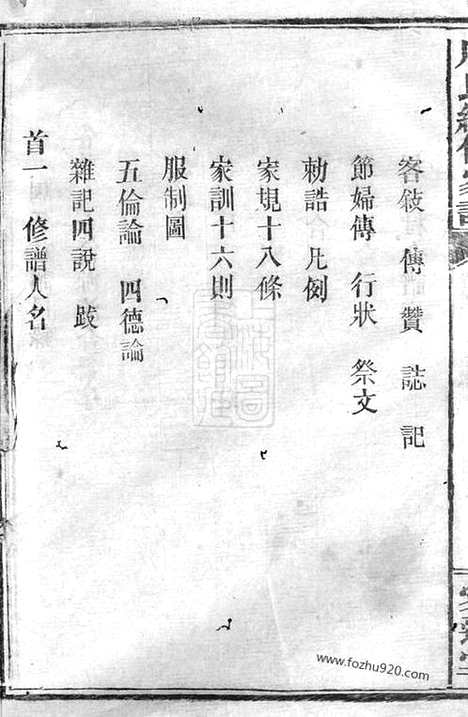 客敍 傳 贊 誌 記
節婦傳 行狀 祭文
勅誥 凡例
家規十八條
家訓十六則
服制圖
五倫論 四德論
雜記四說 跋
首一 修譜人名
www.fozhu920.com